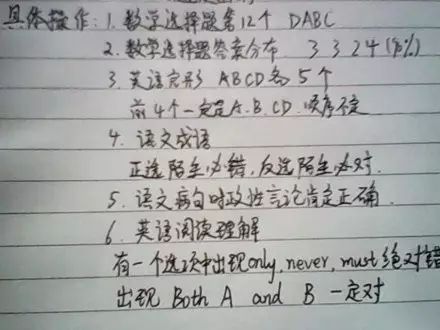 具体操作：1. 数学选择题第12个 DABC
2. 数学选择题答案分布 3 3 2 4 (90%)
3. 英语完形 ABCD各5个
前4个一定是A.B.CD.顺序不定
4. 语文成语
正选陌生必错，反选陌生必对.
5. 语文病句时政性言论肯定正确.
6. 英语阅读理解
有一个选项中出现only, never, must绝对错
出现 Both A and B 一定对